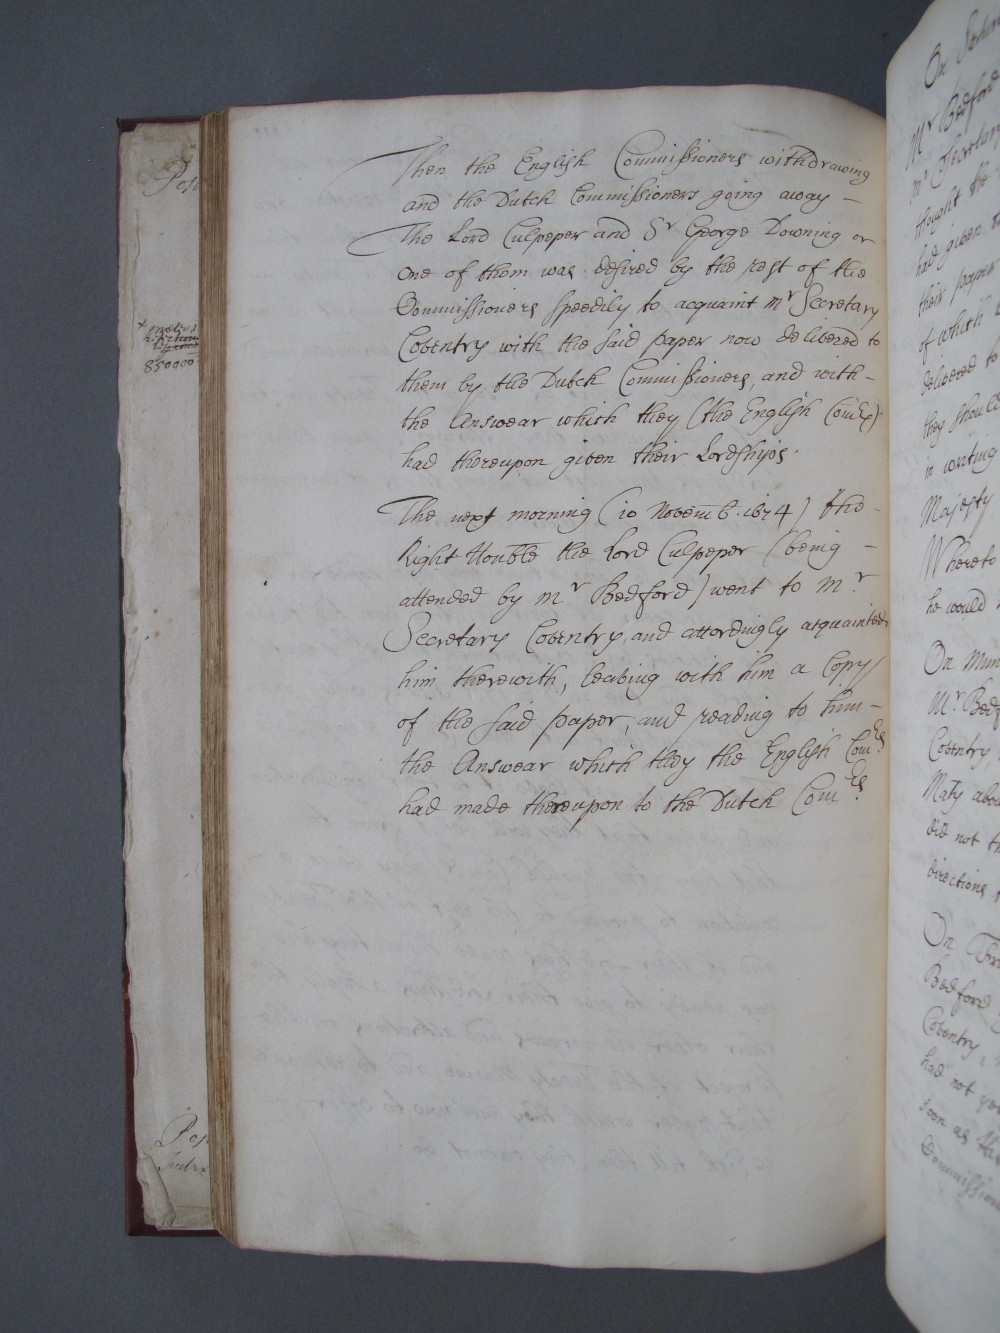 Then the English Commissioners withdrawing
and the Dutch Commissioners going away –
The Lord Culpeper and Sr George Downing or
one of them was desired by the rest of the
Commissioners speedily to acquaint mr Secretary
Coventry with the said paper now delivered to
them by the Dutch Commissioners, and with –
the Answear which they (the English Comrs)
had thereupon given their Lordships.
The next morning (10 Novemb. 1674) the –
Right Honble the Lord Culpeper (being –
attended by mr Bedford) went to mr
Secretary Coventry, and accordingly acquainted
him therewith, leaving with him a Copy
of the said paper, and reading to him –
the Answear which they the English Comrs
had made thereupon to the Dutch Comrs.
Pos
850000
Pos
Index
On
Mr Bedford
mr Secretary
thought the
had given
their paper
of which
delivered to
they should
in writing
Majesty
Whereto
he would
On Mun
Mr. Bed
Coventry,
Maty abou
did not th
directions
On Fri
Bedford
Coventry,
had not
soon as
Commission